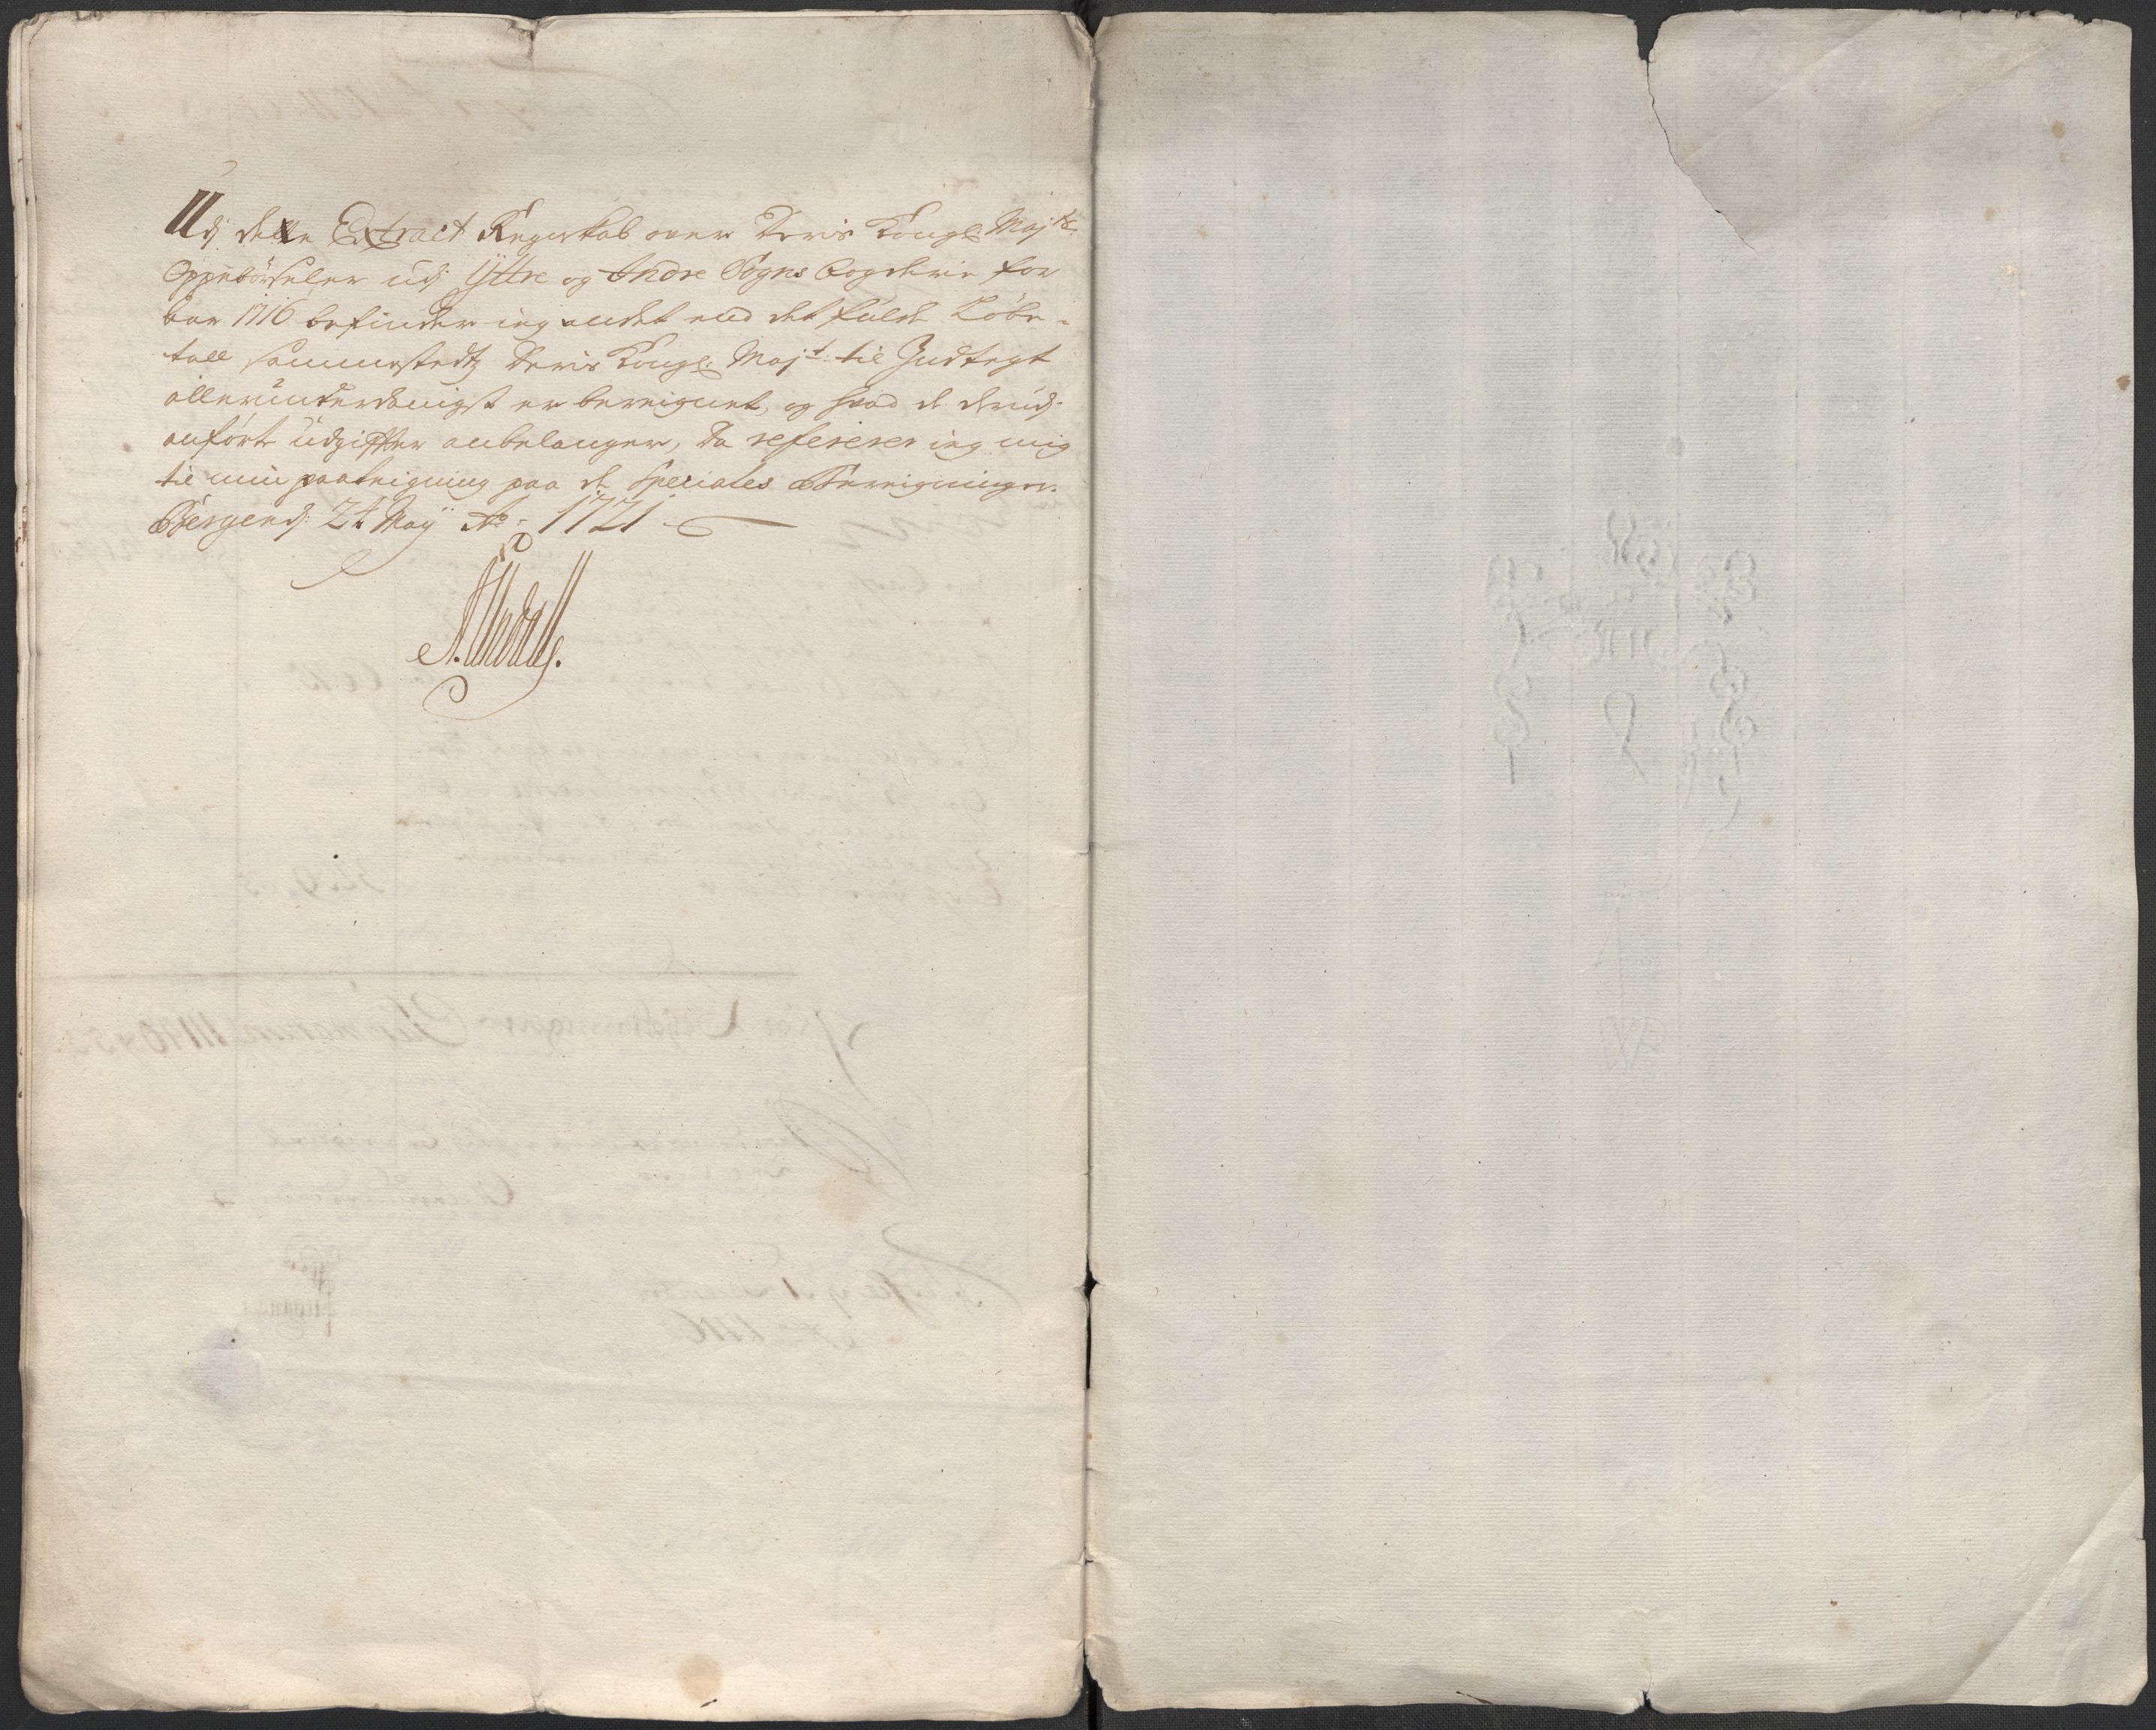 Udj dette Extract Regnskab over Deris Kongl: Majts:
Oppebørseler udj Yttre og Indre Sogns Fogderie for
Aar 1716 befinder ieg andet end det fulde Løbe-
tall sammestedtz Deris Kongl: Majt: til Indtegt
allerunderdanigst er bereignet, og hvad de derudj
anførte udgiffter anbelanger, da refererer ieg mig
til min paateigning paa de Speciales Bereigninger.
Bergen dj: 24 Maÿ Ao: 1721